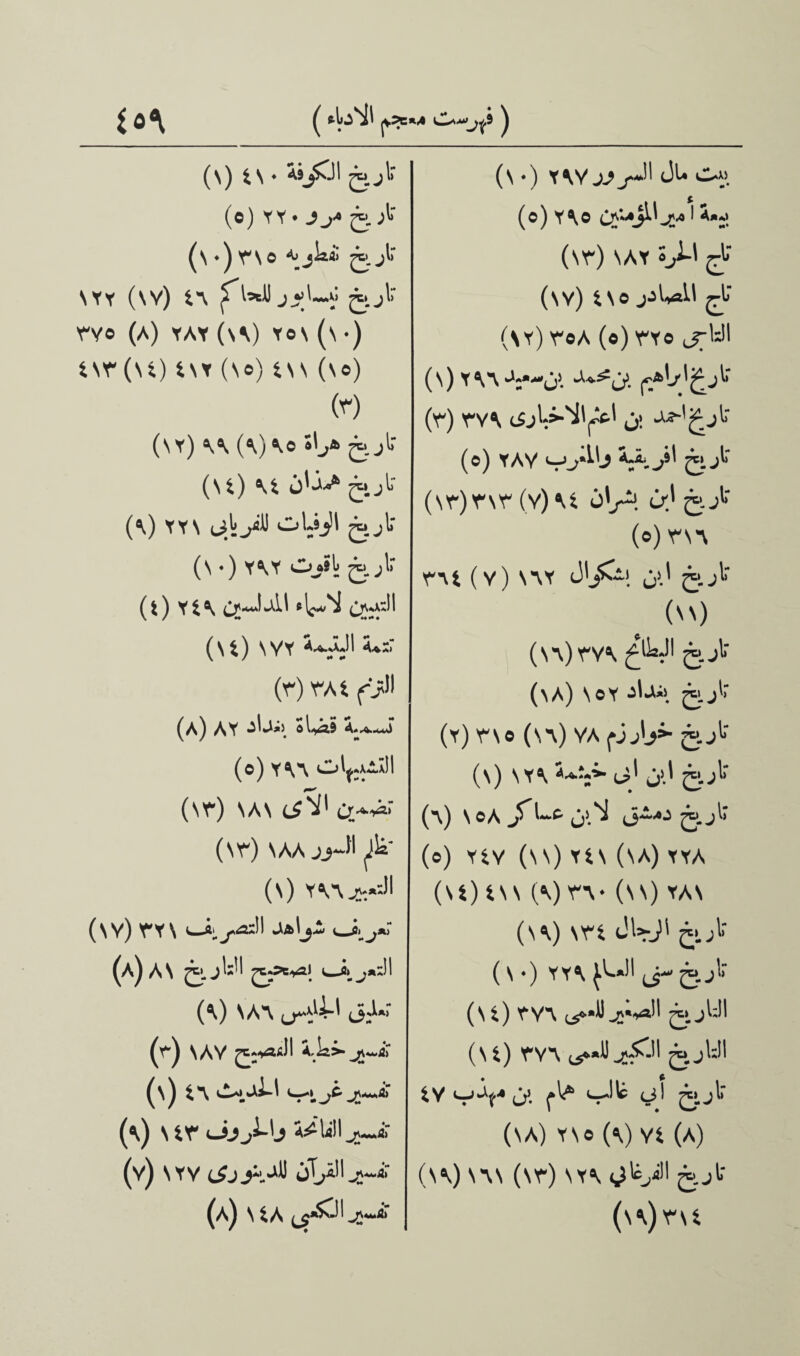 ( فهرست معجم الادباء ) ٤٥٩
بيت مال السرور ٢٩٧ (١٠)
بيعة أمير المؤمنين ٢٩٥ (٥)
تاج الحرة ١٨٢ (١٣)
تاج المصادر ٤١٥ (١٧)
التاجى ٣٢٥ (٥) ٣٥٨ (١٢)
تاريخ ابراهيم بن محمد بن سعيد ٢٩٦ (١)
تاريخ احمد بن أعثم الاخبارى ٣٧٩ (٣)
تاريخ أفريقية والمغرب ٢٨٧ (٥)
تاريخ ابن بشران ٩٤ (٧) ٣١٣ (١٣)
٣١٦ (٥)
تاريخ ابن بشكوال ١٦٢ (٧) ٣٦٤
(١١)
تاريخ البلاذري ٣٧٩ (١٦)
تاريخ بغداد ١٥٢ (١٨)
تاريخ خوارزم ٧٨ (١٦) ٣١٥ (٢)
تاريخ ابن أبى خيثمة ١٢٩ (١)
تاريخ دمشق لابن عساكر ١٥٨ (٦)
٢٢٨ (١٨) ٢٤١ (١١) ٢٤٧ (٥)
٢٨١ (١١) ٣٦٠ (٩) ٤١١ (١٤)
تاريخ الرجال ١٣٤ (١٩)
تاريخ سنى العالم ٢٢٩ (١٠)
التاريخ الصغير للعمى ٣٧٦ (١٤)
التاريخ الكبير للعمى ٣٧٦ (١٤)
تاريخ أبى غالب همام بن مهذب ٤٧
(٨) ٧٤ (٩) ٢١٥ (١٨)
تاريخ الفرغانى ١٢٩ (١٣) ١٦١ (١٩)
٣١٤ (١٩)
تاريخ الكوفة ٤١٠ (١)
تاريخ مرو ٢٢٠ (٥)
تاريخ نفطويه ٣١٥ (١٠)
تاريخ نيسابور للحاكم ٤٦ (١٧) ١٢٢
(١٠) ٢٥١ (١٩) ٢٨٢ (٨) ٣٧٥
(١٥) ٤١١ (١٥) ٤١٢ (١٤) ٤١٣
(٣)
تاريخ هراة ٩٥ (٩) ٩٩ (١٢)
تاريخ همذان ٩٤ (١٤)
تاريخ الوفيات للفرغانى ٢٢١ (٩)
تاريخ ياقوت ٢٩٢ (١٠)
التبيين لاسماء المدلسين ٢٤٩ (٤)
تتمة اليتيمة ١٧٢ (١٤)
التراجم ٢٨٤ (٣)
تسمية قضاة بغداد ٨٢ (٨)
التشبيهات ٢٩٦ (٥)
تضمين الآى ١٨١ (١٣)
تعطر السرور ١٨٨ (١٣)
التعبير ٢٩٦ (١)
تعريف شواهد التصريف ٣٢١ (١٧)
التعريف بصحيح التاريخ ٨١ (٨)
تعليق الخلس ١٨٦ (٩)
تفسير خطبة الفصيح ١٨٧ (٣)
تفسير غريب الحديث ٤٦ (١)
تفسير الفاكهة والحروف ١٤٣ (٩)
تفسير القرآن للدينورى ١٢٧ (٧)
تفسير الكعبى ١٤٨ (٨)